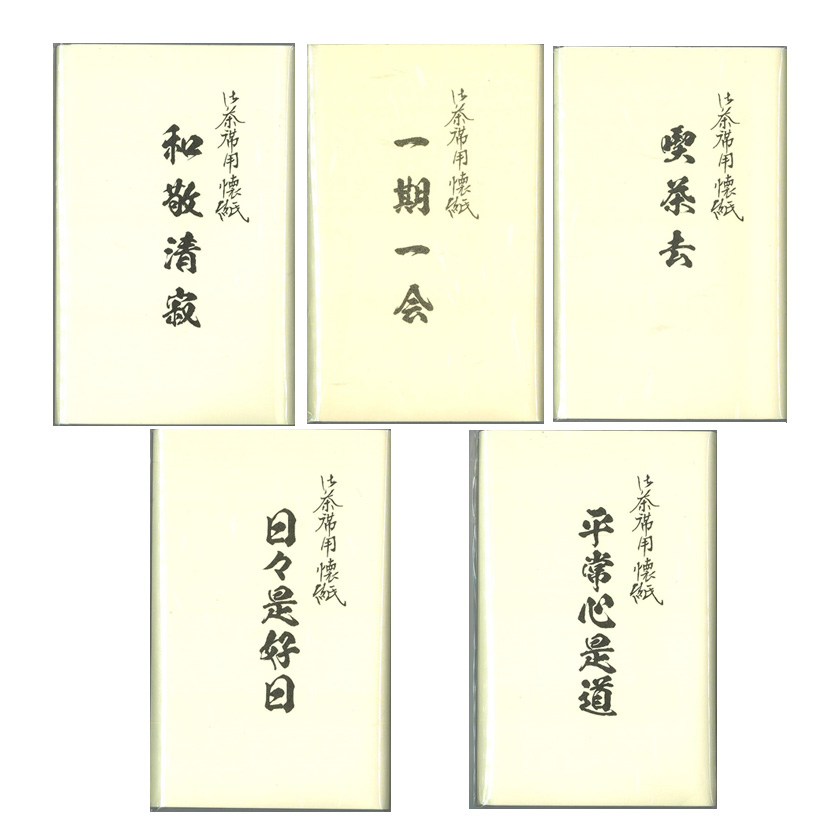 御茶席用懐紙
和敬清寂
御茶席用懐紙
一期一会
御茶席用懐紙
喫茶去
御茶席用懐紙
日々是好日
御茶席用懐紙
平常心是道